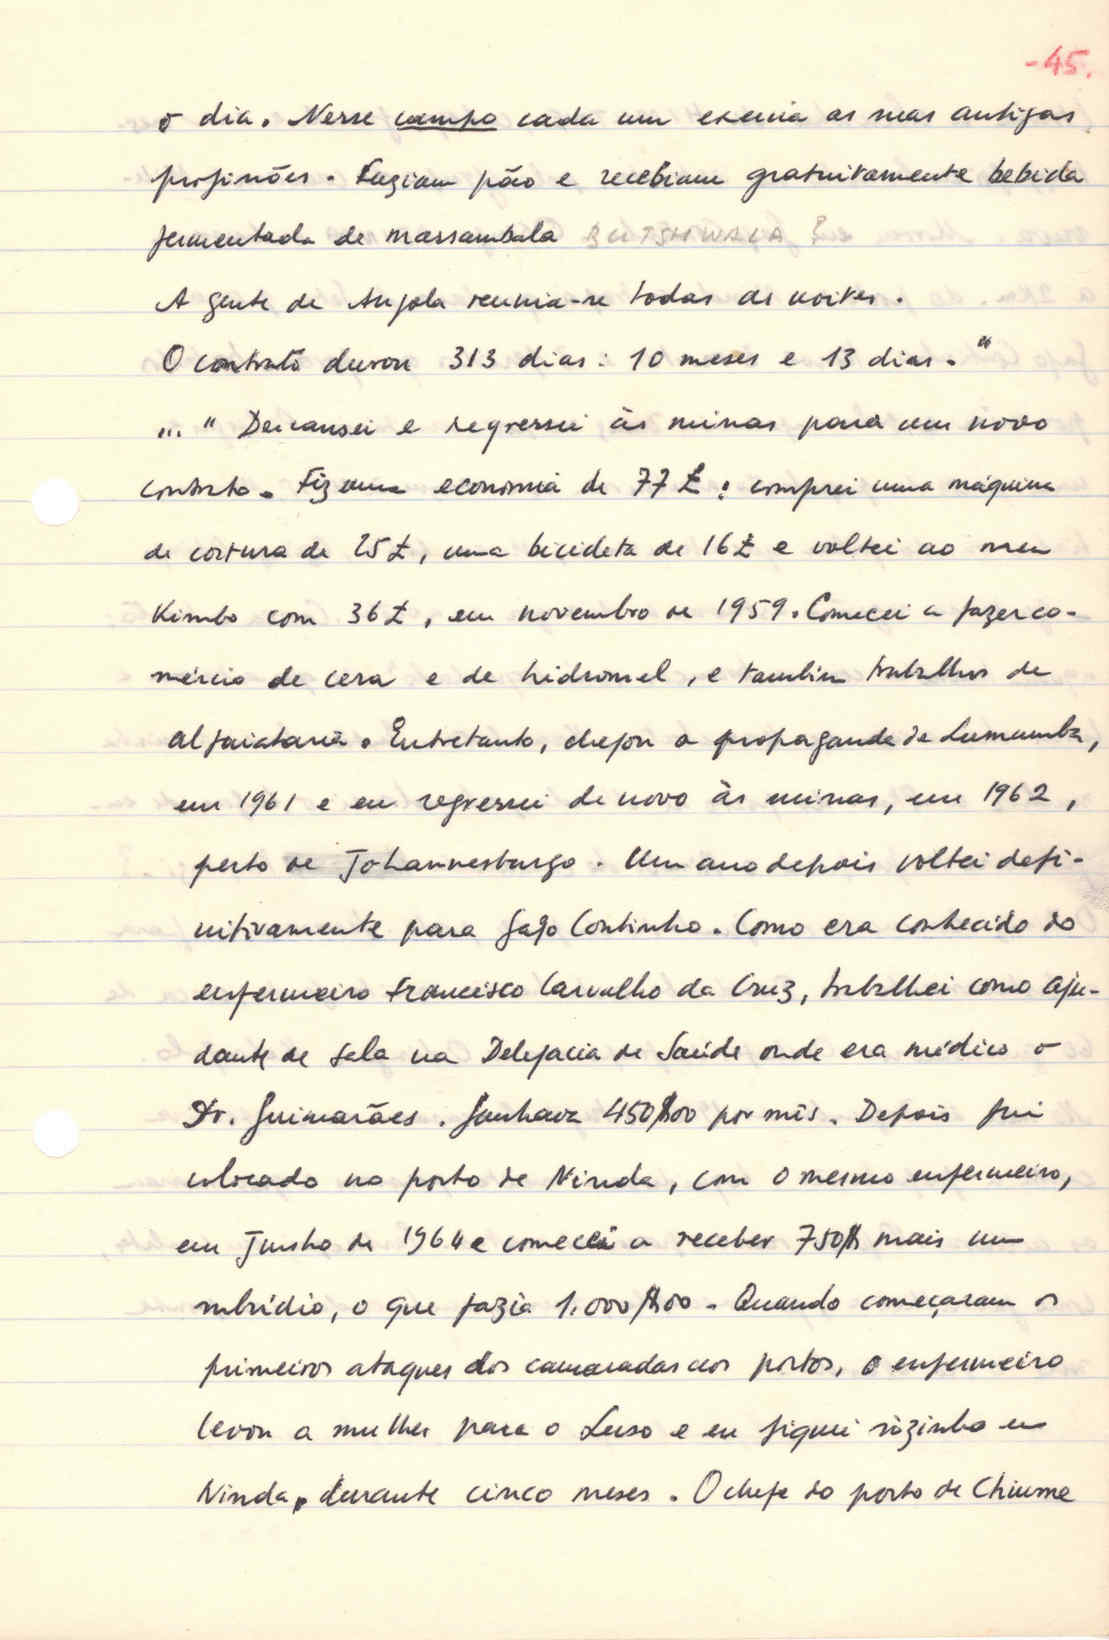 -45.
o dia. Nesse campo cada um exercia as suas antigas
profissões. Faziam pão e recebiam gratuitamente bebida
fermentada de massambala BUTSHWALA ?
A gente de Angola reunia-se todas as noites.
O contrato durou 313 dias: 10 meses e 13 dias."
... " Descansei e regressei às minas para um novo
contrato. Fiz uma economia de 77 £: comprei uma máquina
de costura de 25£, uma bicicleta de 16£ e voltei ao meu
Kimbo com 36£, em novembro de 1959. Comecei a fazer co-
mércio de cera e de hidromel, e também trabalhos de
alfaiataria. Entretanto, chegou a propaganda de Lumumba,
em 1961 e eu regressei de novo às minas, em 1962,
perto de Johannesburgo. Um ano depois voltei defi-
nitivamente para Gago Coutinho. Como era conhecido do
enfermeiro Francisco Carvalho da Cruz, trabalhei como aju-
dante de sala na Delegacia de Saúde onde era médico o
Dr. Guimarães. Ganhava 450$00 por mês. Depois fui
colocado no posto de Ninda, com o mesmo enfermeiro,
em Junho de 1964 e comecei a receber 750$ mais um
subsídio, o que fazia 1.000$00. Quando começaram os
primeiros ataques dos camaradas aos postos, o enfermeiro
levou a mulher para o Luso e eu fiquei sòzinho em
Ninda, durante cinco meses. O chefe do posto de Chiume